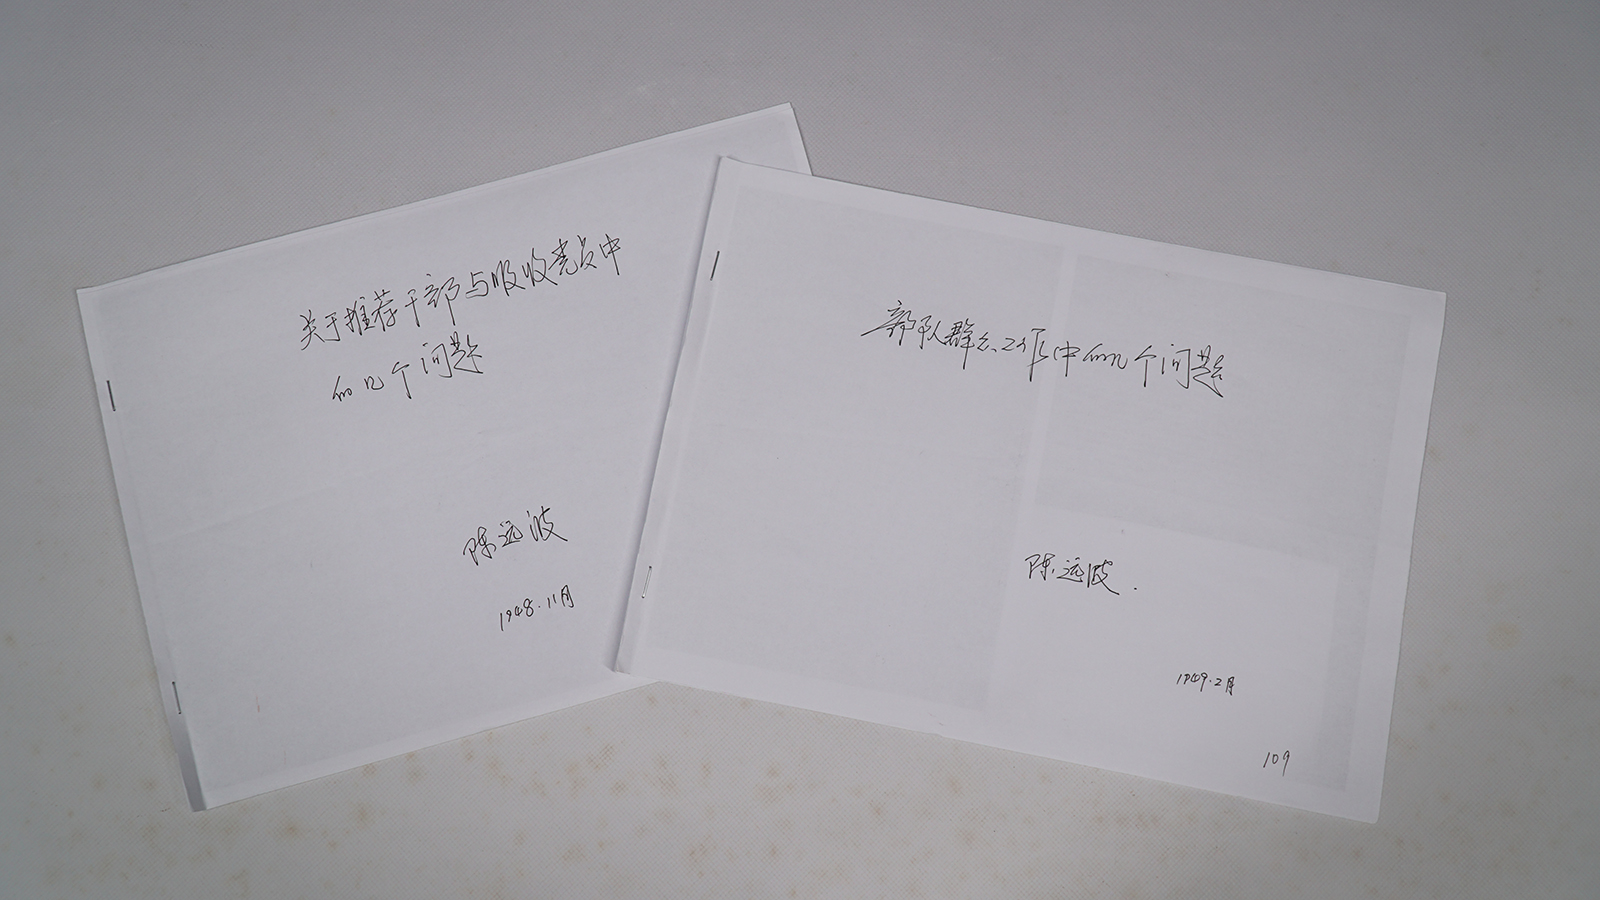 关于推荐干部与吸收党员中
的几个问题
陈远波
1948.11月
部队群众工作中的几个问题
陈远波.
1949.2月
109